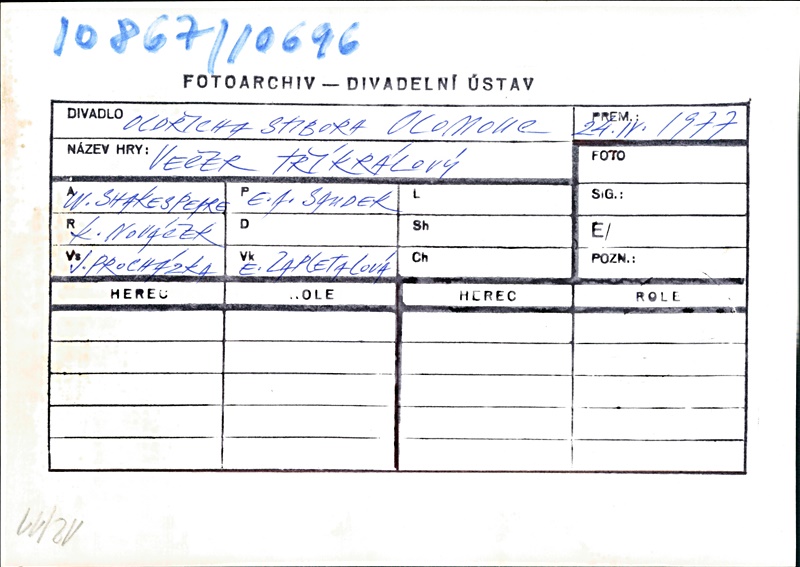 10867/10696
FOTOARCHIV — DIVADELNÍ ÚSTAV
DIVADLO OLDŘICHA STIBORA OLOMOUC PREM.: 24.IV. 1977
NÁZEV HRY: VEČER TŘÍKRÁLOVÝ FOTO
A W. SHAKESPEARE P E.A. SAUDEK L SIG.:
R K. NOVÁČEK D Sh E/
Vs J. PROCHÁZKA Vk E. ZAPLETALOVÁ Ch POZN.:
HEREC ROLE HEREC ROLE